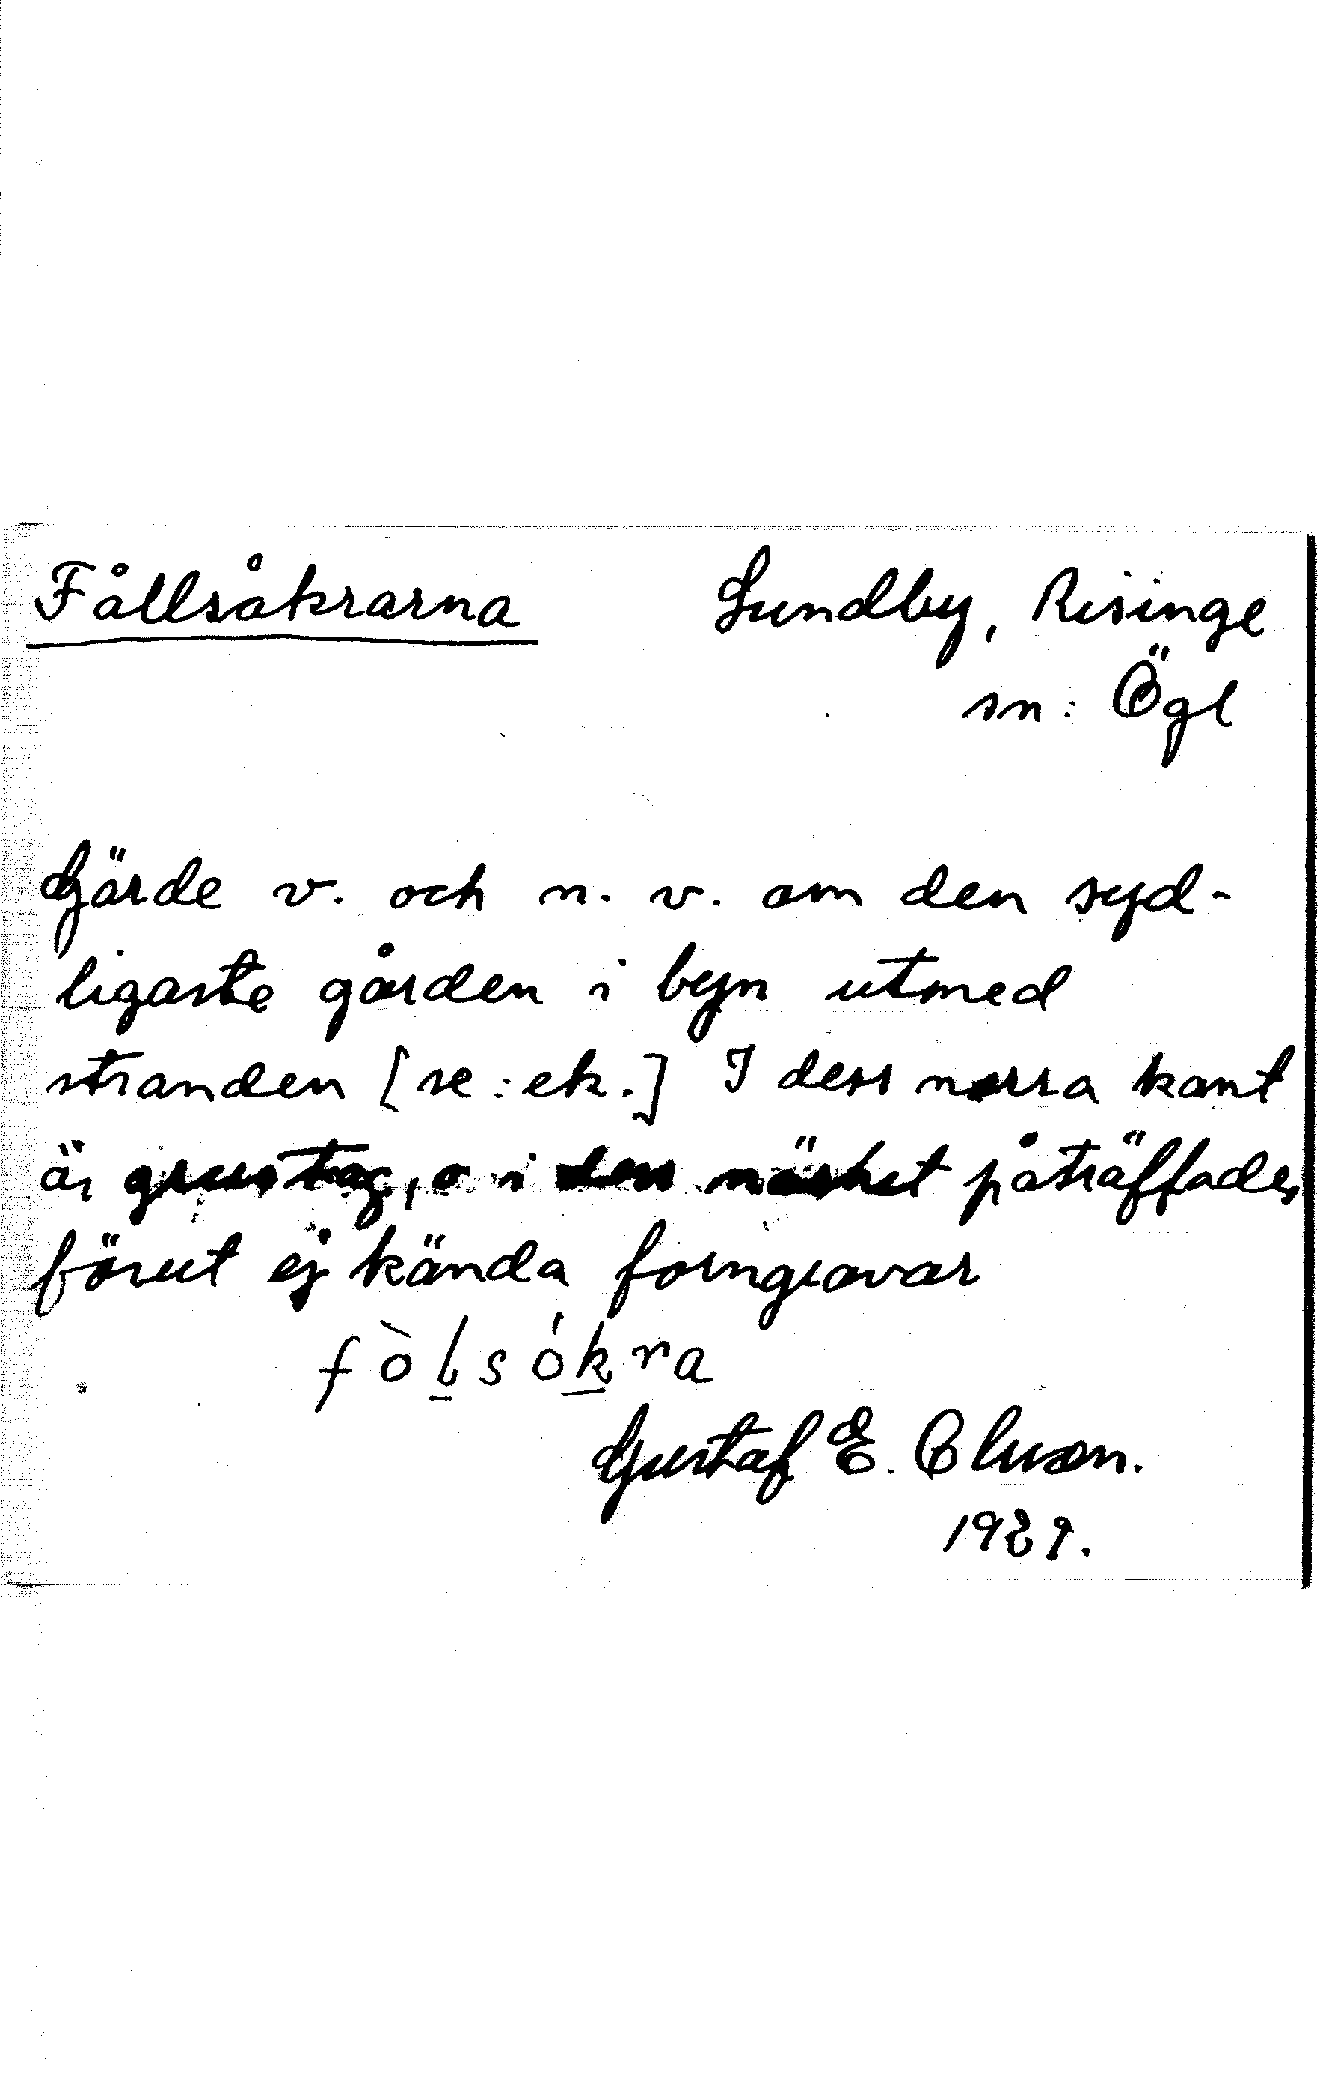 Fållsåkrarna Lundby, Risinge
sn: Ögl
Gärde v. och n. v. om den syd-
ligaste gården i byn utmed
stranden [se: ek.] I dess norra kant
är grustag, o i dess närhet påträffades
förut ej kända forngravar
fòlsókra
Gustaf E. Cluson.
1929.